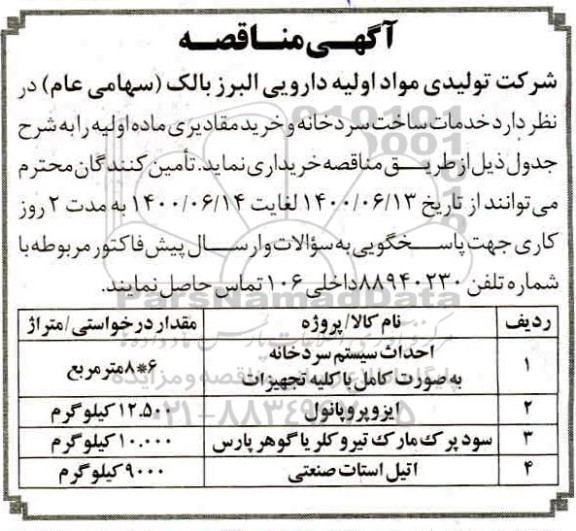 آگهی مناقصه
شرکت تولیدی مواد اولیه دارویی البرز بالک (سهامی عام) در
نظر دارد خدمات ساخت سردخانه و خرید مقادیری ماده اولیه را به شرح
جدول ذیل از طریق مناقصه خریداری نماید. تأمین کنندگان محترم
می توانند از تاریخ ۱۴۰۰/۰۶/۱۳ لغایت ۱۴۰۰/۰۶/۱۴ به مدت ۲ روز
کاری جهت پاسخگویی به سؤالات و ارسال پیش فاکتور مربوطه با
شماره تلفن ۸۸۹۴۰۲۳۰ داخلی ۱۰۶ تماس حاصل نمایند.
ردیف نام کالا/پروژه مقدار درخواستی/متراژ
۱ احداث سیستم سردخانه به صورت کامل با کلیه تجهیزات ۶*۸ مترمربع
۲ ایزوپروپانول ۱۲.۵۰۰ کیلوگرم
۳ سود پرک مارک تیروکلر یا گوهر پارس ۱۰.۰۰۰ کیلوگرم
۴ اتیل استات صنعتی ۹۰۰۰ کیلوگرم
ParsNamadData